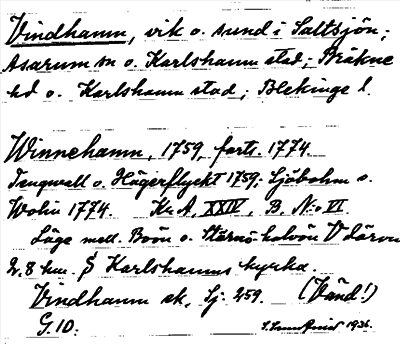 Vindhamn, vik o. sund i Saltsjön;
Asarum sn o. Karlshamn stad; Bräkne
hd o. Karlshamn stad; Blekinge l.
Winnehamn, 1759, forts. 1774
Tengwall o. Hägerflyckt 1759; Sjöbohm o.
Wohn 1774. Kr A XXIV, B. N:o VI
Läge mell. Boön o. Sternö halvön V därom
2,8 km. S Karlshamns kyrka.
Vindhamn ek, Sj. 259. (Vänd!)
G. 10. 1936.